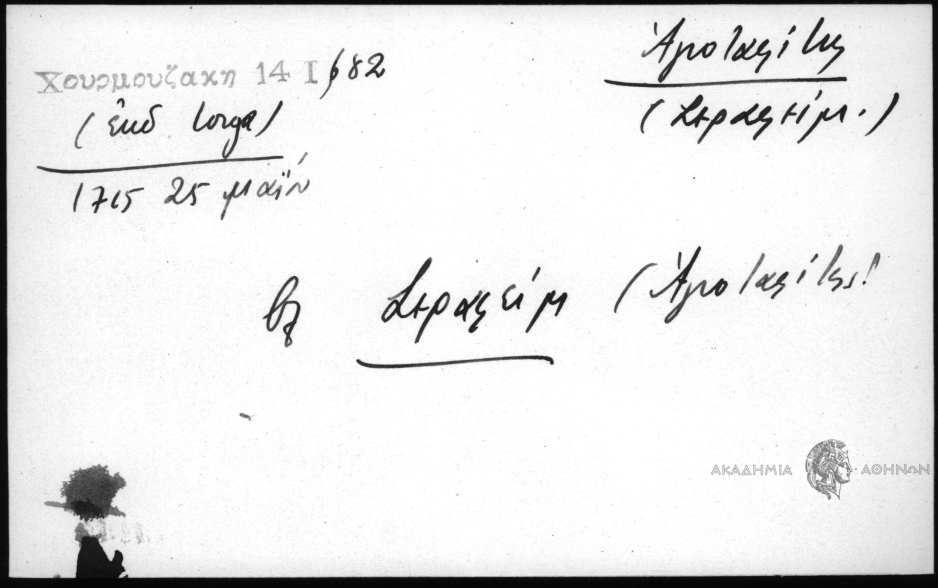 Χουρμουζακη 14 I, 682
(ἔκδ Iorga)
1715 25 μαΐου
Ἁγιοταφίτης
(Σεραφείμ.)
βλ Σεραφείμ (Ἁγιοταφίτης)
ΑΚΑΔΗΜΙΑ ΑΘΗΝΩΝ